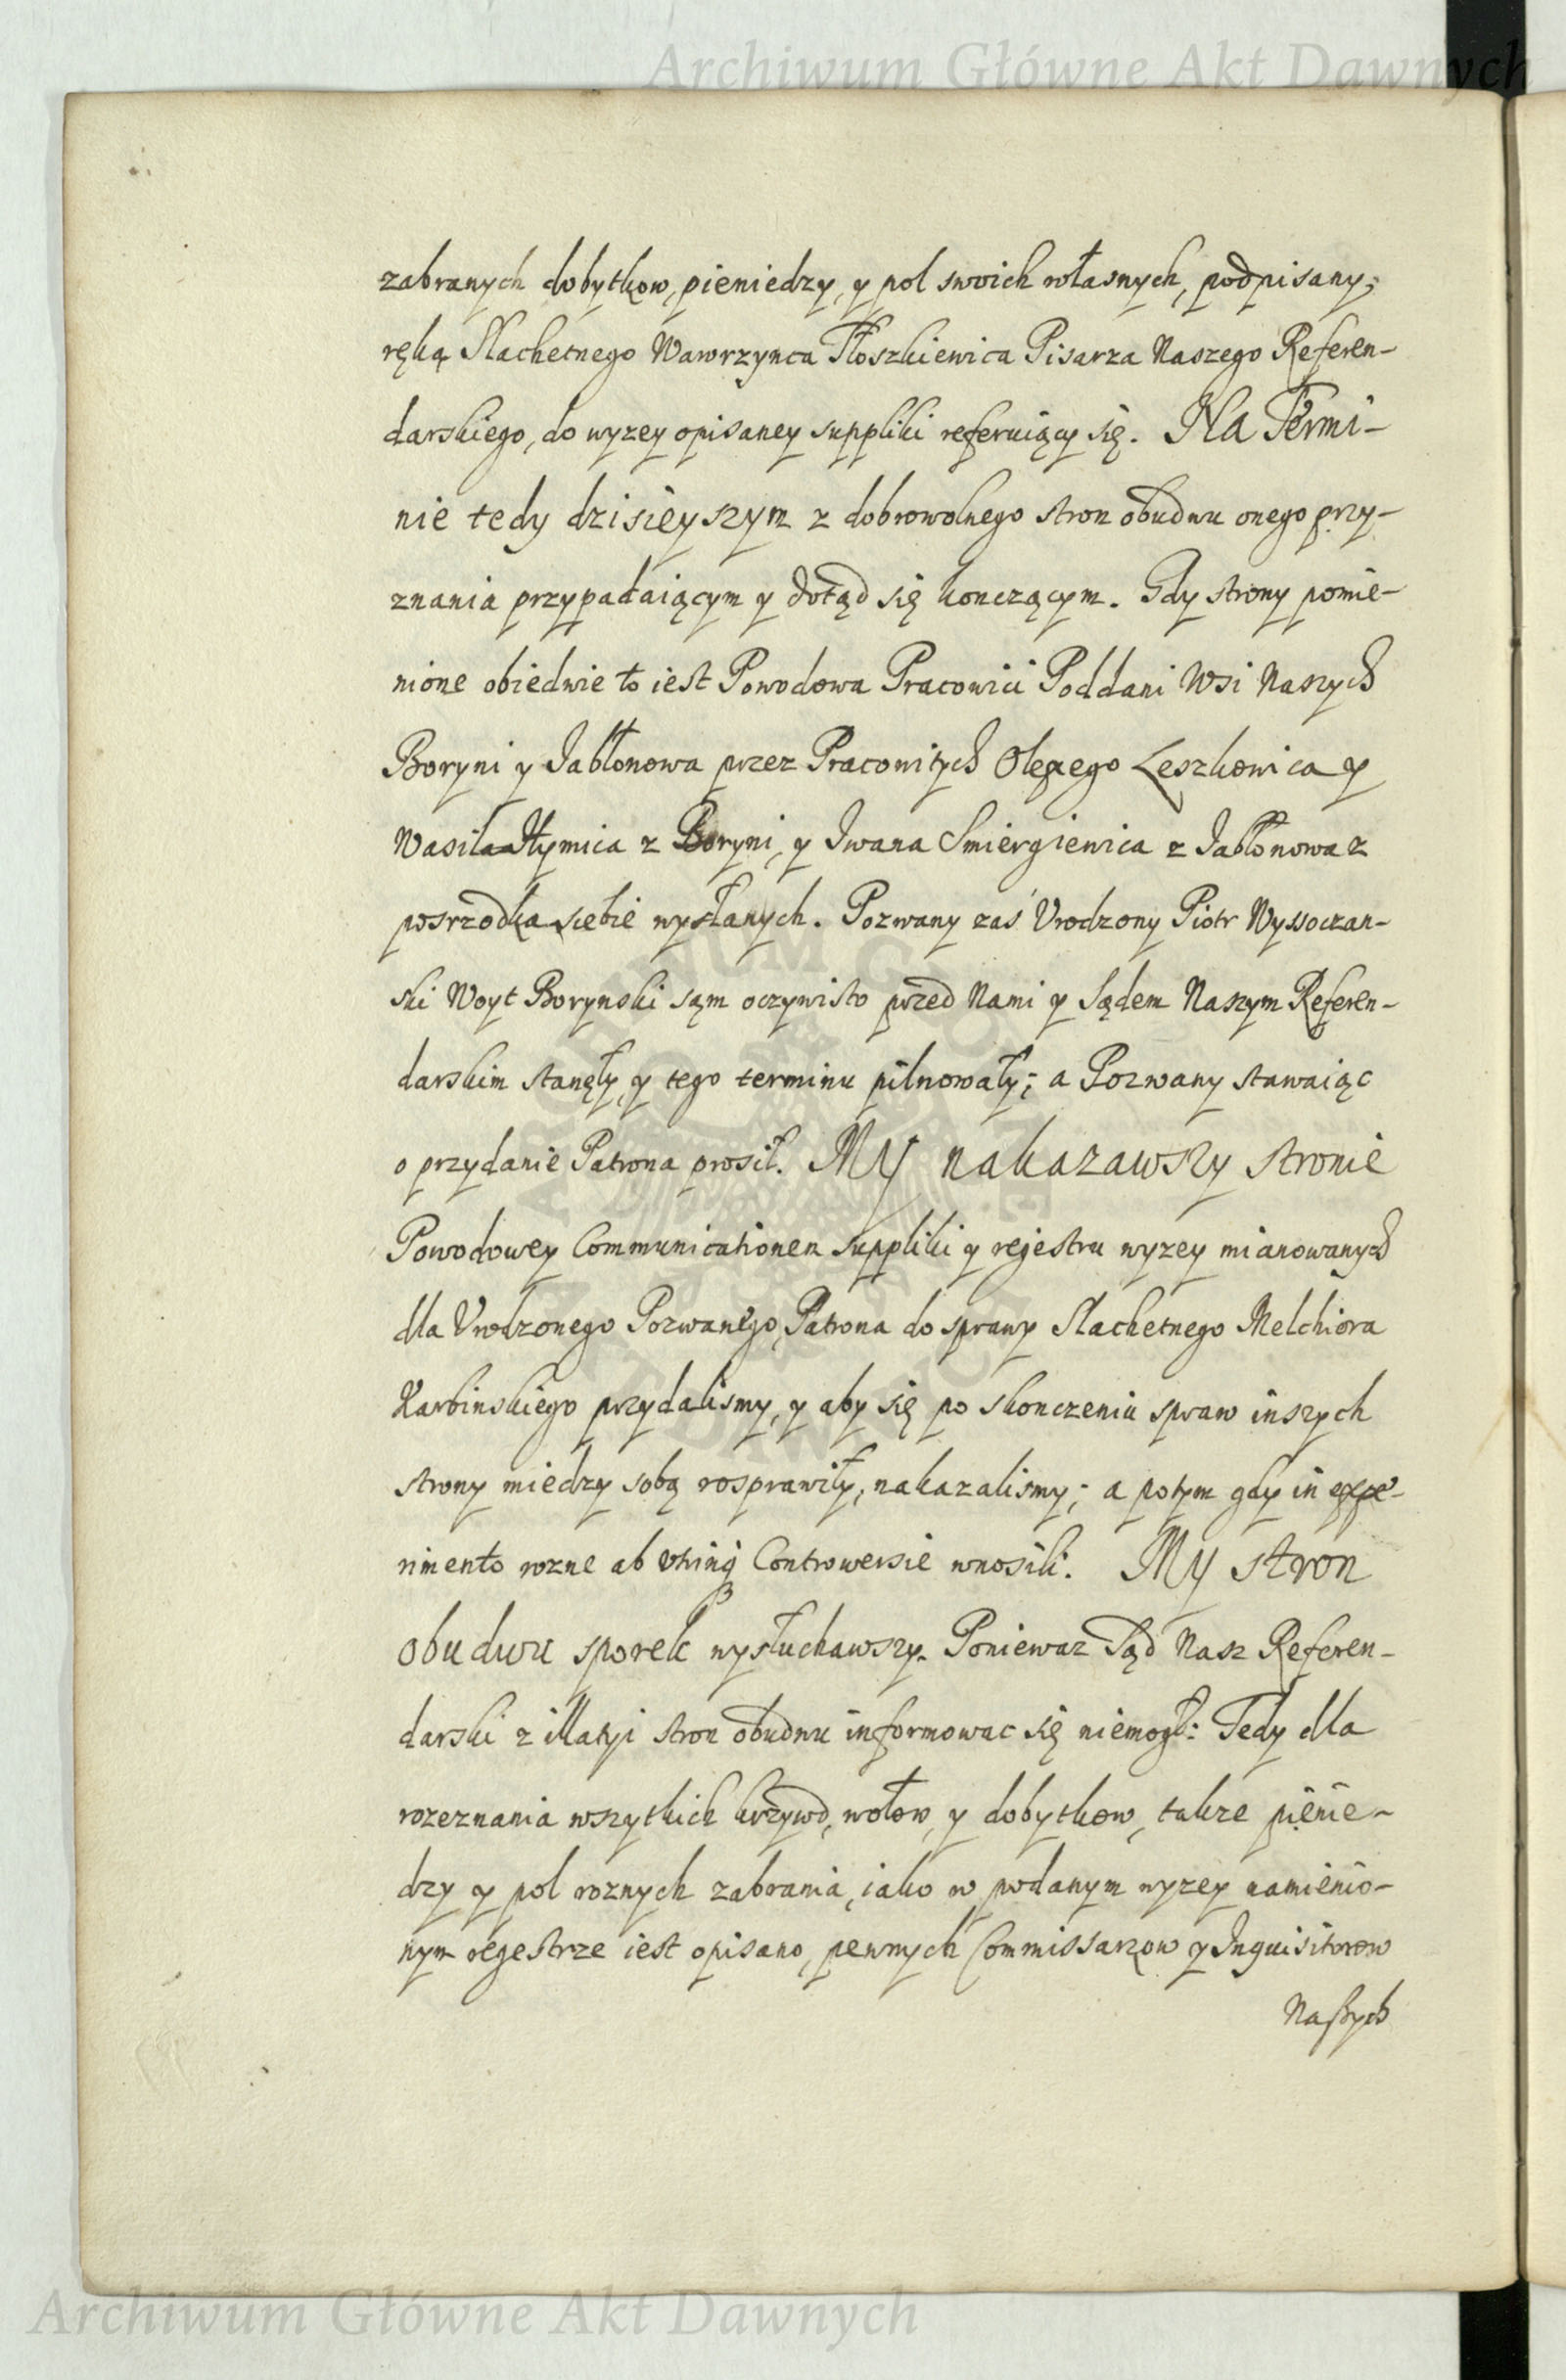 Archiwum Główne Akt Dawnych
zabranych dobytkow, pieniedzy, y pol swoich własnych, podpisany,
ręką Slachetnego Wawrzynca Tłoszkiewica Pisarza Naszego Referen-
darskiego, do wyzey opisaney suppliki referuiący się. Na Termi-
nie tedy dzisieyszym z dobrowolnego stron obudwu onego przy-
znania przypadaiącym y dotąd się konczącym. Gdy strony pomie-
nione obiedwie to iest Powodowa Pracowici Poddani Wsi Naszych
Boryni y Jabłonowa przez Pracowitych Olexego Leszkowica y
Wasila Ilymica z Boryni, y Iwana Smiergiewica z Jabłonowa z
posrzodka siebie wysłanych. Pozwany zas Urodzony Piotr Wyssoczan-
ski Woyt Borynski sąm oczywisto przed Nami y Sądem Naszym Referen-
darskim stanęły, y tego terminu pilnowały; a Pozwany stawaiąc
o przydanie Patrona prosił. My nakazawszy stronie
Powodowey Communicationem suppliki y rejestru wyzey mianowanych
dla Urodzonego Pozwanego, Patrona do sprawy Slachetnego Melchiora
Karbinskiego przydalismy, y aby się po skonczeniu spraw inszych
strony miedzy sobą rosprawiły, nakazalismy; a potym gdy in expe-
rimento rozne ab utrinq3 Controwersie wnosili. My stron
obudwu sporek wysłuchawszy. Poniewaz Sąd Nasz Referen-
darski z illatyi stron obudwu informowac się niemogł: Tedy dla
rozeznania wszytkich krzywd, wołow, y dobytkow, takze pienie-
dzy y pol roznych zabrania, iako w podanym wyzey namienio-
nym regestrze iest opisano, pewnych Commissarzow y Inquisitorow
Naszych
Archiwum Główne Akt Dawnych